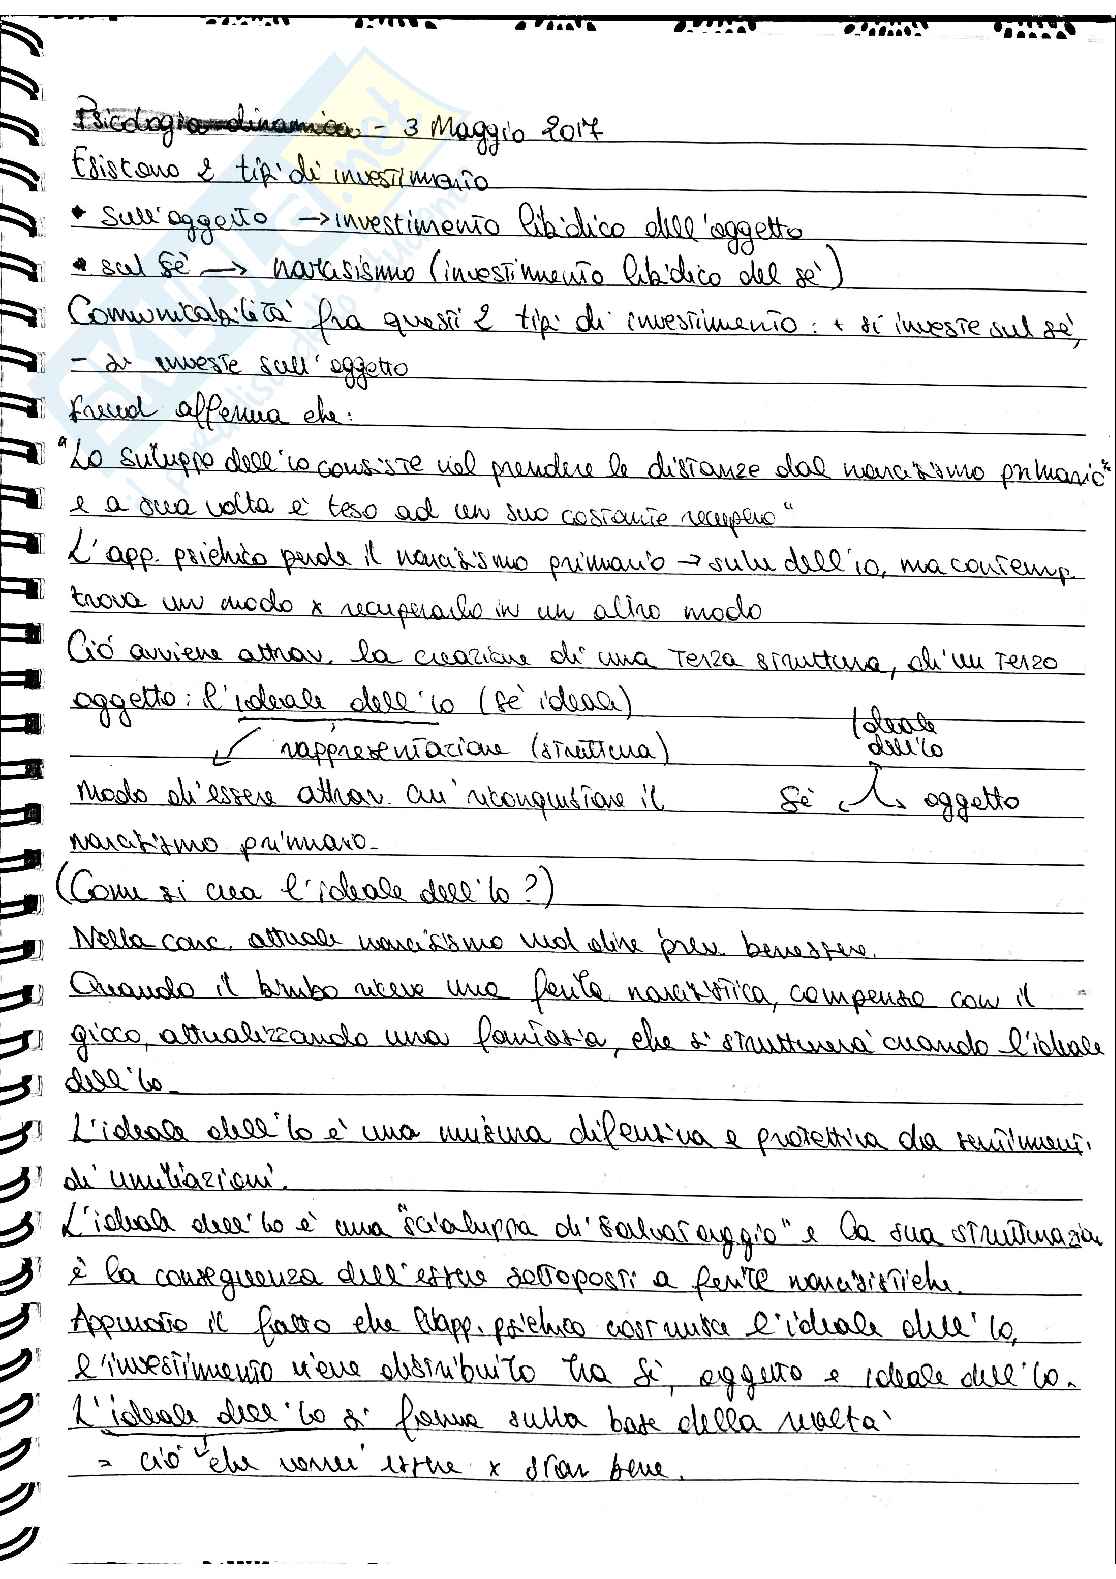 Psicologia dinamica - 3 Maggio 2017
Esistono 2 tipi di investimento
• sull'oggetto → investimento libidico dell'oggetto
• sul sè → narcisismo (investimento libidico del sè)
Comunicabilità fra questi 2 tipi di investimento: + si investe sul sè,
- si investe sull'oggetto
Freud afferma che:
"Lo sviluppo dell'io consiste nel prendere le distanze dal narcisismo primario"
e a sua volta è teso ad un suo costante recupero"
L'app. psichico perde il narcisismo primario → dell'io, ma contemp.
trova un modo x recuperarlo in un altro modo
Ciò avviene attrav. la creazione di una terza struttura, di un terzo
oggetto: l'ideale dell'io (sè ideale)
rappresentazione (struttura)
Ideale
dell'io
Modo di essere attrav. cui riconquistare il
Sè oggetto
narcisismo primario.
(Come si crea l'ideale dell'Io?)
Nella conc. attuale narcisismo vuol dire benessere.
Quando il bimbo riceve una ferita narcisistica, compensa con il
gioco, attualizzando una fantasia, che si strutturerà creando l'ideale
dell'Io.
L'ideale dell'Io è una misura difensiva e protettiva da sentimenti
di umiliazioni.
L'ideale dell'Io è una "scialuppa di salvataggio" e la sua strutturazion
è la conseguenza dell'essere sottoposti a ferite narcisistiche.
Appurato il fatto che l'app. psichico costruisce l'ideale dell'Io,
l'investimento viene distribuito tra Sè, oggetto e ideale dell'Io.
L'ideale dell'Io si forma sulla base della realtà
= ciò che vorrei essere x star bene.